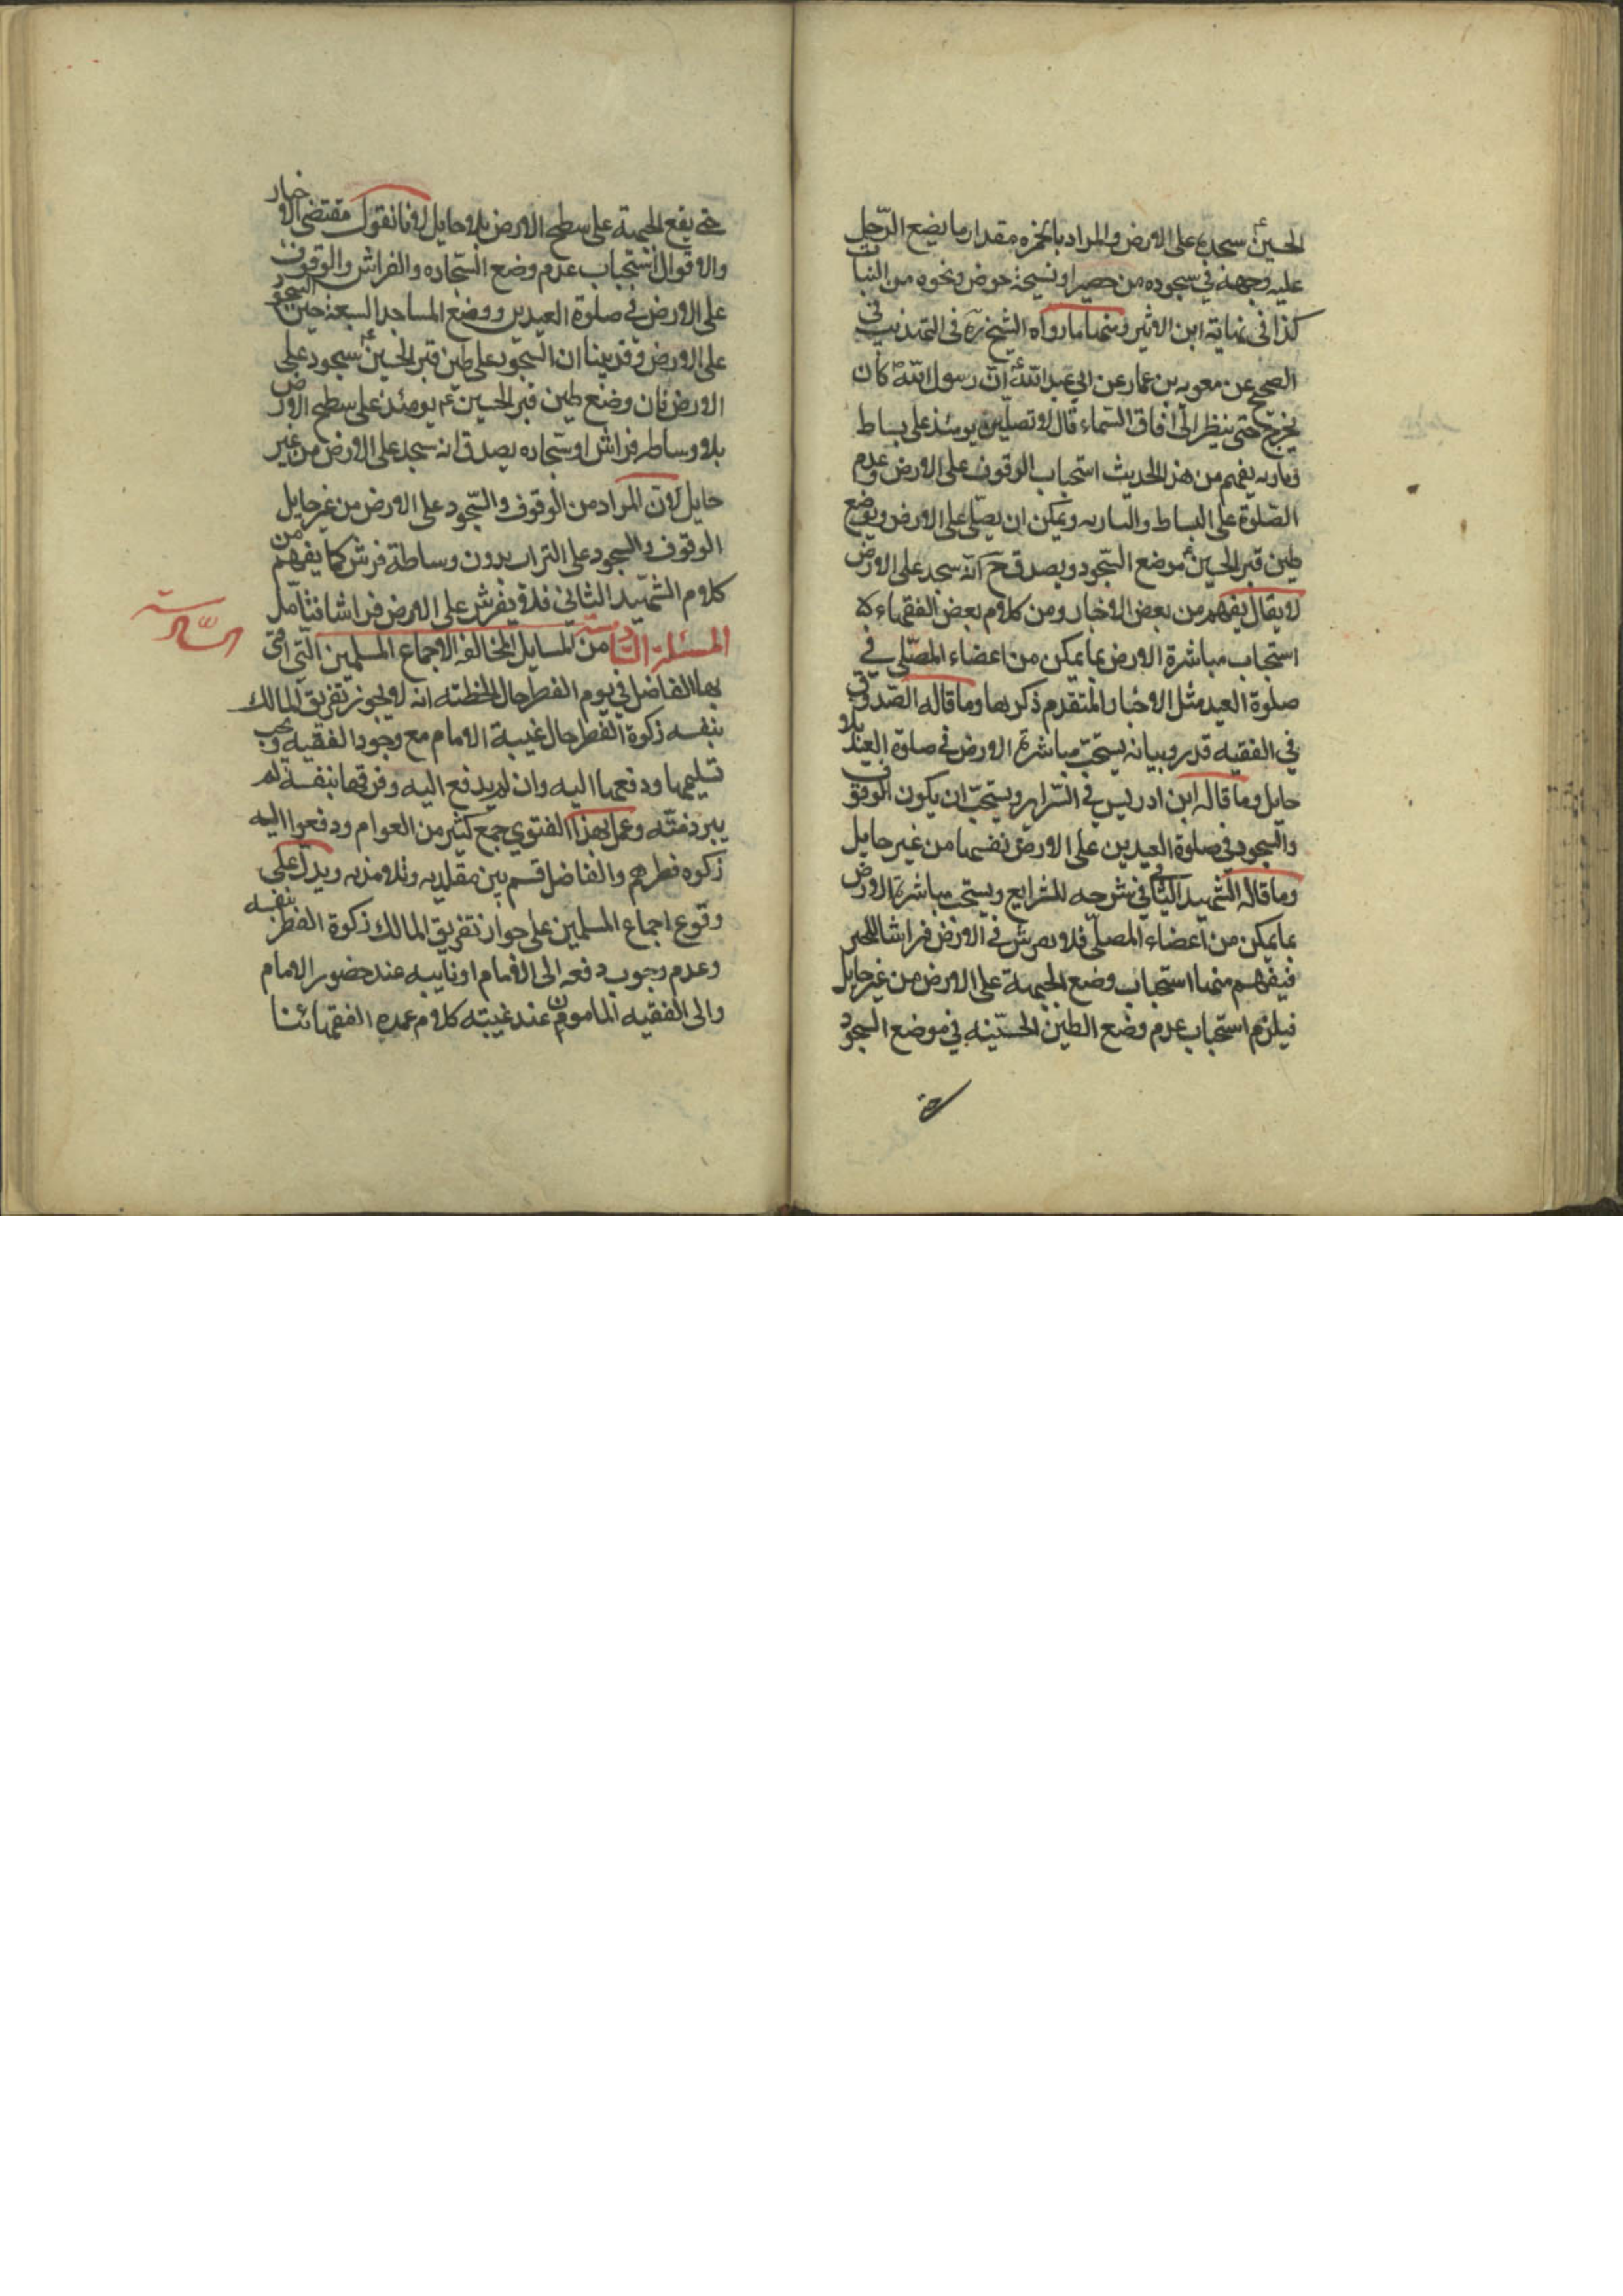 الحسين ع سجدة على الارض والمراد بالخمره مقدار ما يضع الرّجل
عليه وجهه في سجوده من حصير او نسيجة خوص ونحوه من النبات
كذا في نهاية ابن الاثير ومنها ما رواه الشيخ ره في التهذيب في
الصحيح عن معويه بن عمار عن ابي عبد الله ع انّ رسول الله ص كان
يخرج حتى ينظر الى افاق السّماء قال لا تصلين يومئذ على بساط
وباريه يفهم من هذ الحديث استحباب الوقوف على الارض وعدم
الصّلوة على البساط والباريه ويمكن ان يصلّى على الارض ويوضع
طين قبر الحسين ع موضع السّجود ويصدق ح انّه سجد على الارض
لا يقال يفهم من بعض الاخبار ومن كلام بعض الفقهاء
استحباب مباشرة الارض بما يمكن من اعضاء المصّلى في
صلوة العيد مثل الاخبار المتقدم ذكرها وما قاله الصّدوق
في الفقيه قد مر وبيانه يستحبّ مباشرة الارض في صلوة العيد بلا
حايل وما قاله ابن ادريس في السّراير ويستحبّ ان يكون الوقوف
والسجود في صلوة العيدين على الارض نفسها من غير حايل
وما قاله الشهيد الثّاني في شرحه للشرايع ويستحب مباشرة الارض
بما يمكن من اعضاء المصلّى فلا يفرش في الارض فراشا للخبر
فيفهم منها استحباب وضع الجبهة على الارض من غير حايل
فيلزم استحباب عدم وضع الطين الحسّينيه في موضع السجود
حتى
حتى يقع الجبهة على سطح الارض بلا حايل لانا نقول مقتضى الاخبار
والاقوال استحباب عدم وضع السّجاده والفراش والوقوف
على الارض في صلوة العيدين ووضع المساجد السبعة حين السجود
على الارض وقد بينا ان السجود على طين قبر الحسين ع سجود على
الارض فان وضع طين قبر الحسين ع يومئذ على سطح الارض
بلا وساطه فراش او سجّاده يصدق انه سجد على الارض من غير
حايل لان المراد من الوقوف والسّجود على الارض من غير حايل
الوقوف والسجود على التراب بدون وساطة فرش كما يفهم من
كلام الشهيد الثاني فلا يفرش على الارض فراشا فتأمل
المسئلة السّادسة من المسايل المخالفه الاجماع المسلمين الّتي افتى
السّادسة
بها الفاضل في يوم الفطر حال الخطبته انه لا يجوز تفريق المالك
بنفسه زكوة الفطر حال غيبة الامام مع وجود الفقيه ويجب
تسليمها ودفعها اليه وان لم يدفع اليه وفرقها بنفسه لم
يبر ذمّته وعمل بهذا الفتوي جمع كثير من العوام ودفعوا اليه
زكوه فطرهم والفاضل قسم بين مقلديه وتلامذه ويدل على
وقوع اجماع المسلمين على جواز تفريق المالك زكوة الفطر بنفسه
وعدم وجوب دفعه الى الامام او نايبه عند حضور الامام
والى الفقيه المامون عند غيبته كلام عمده الفقهائنا